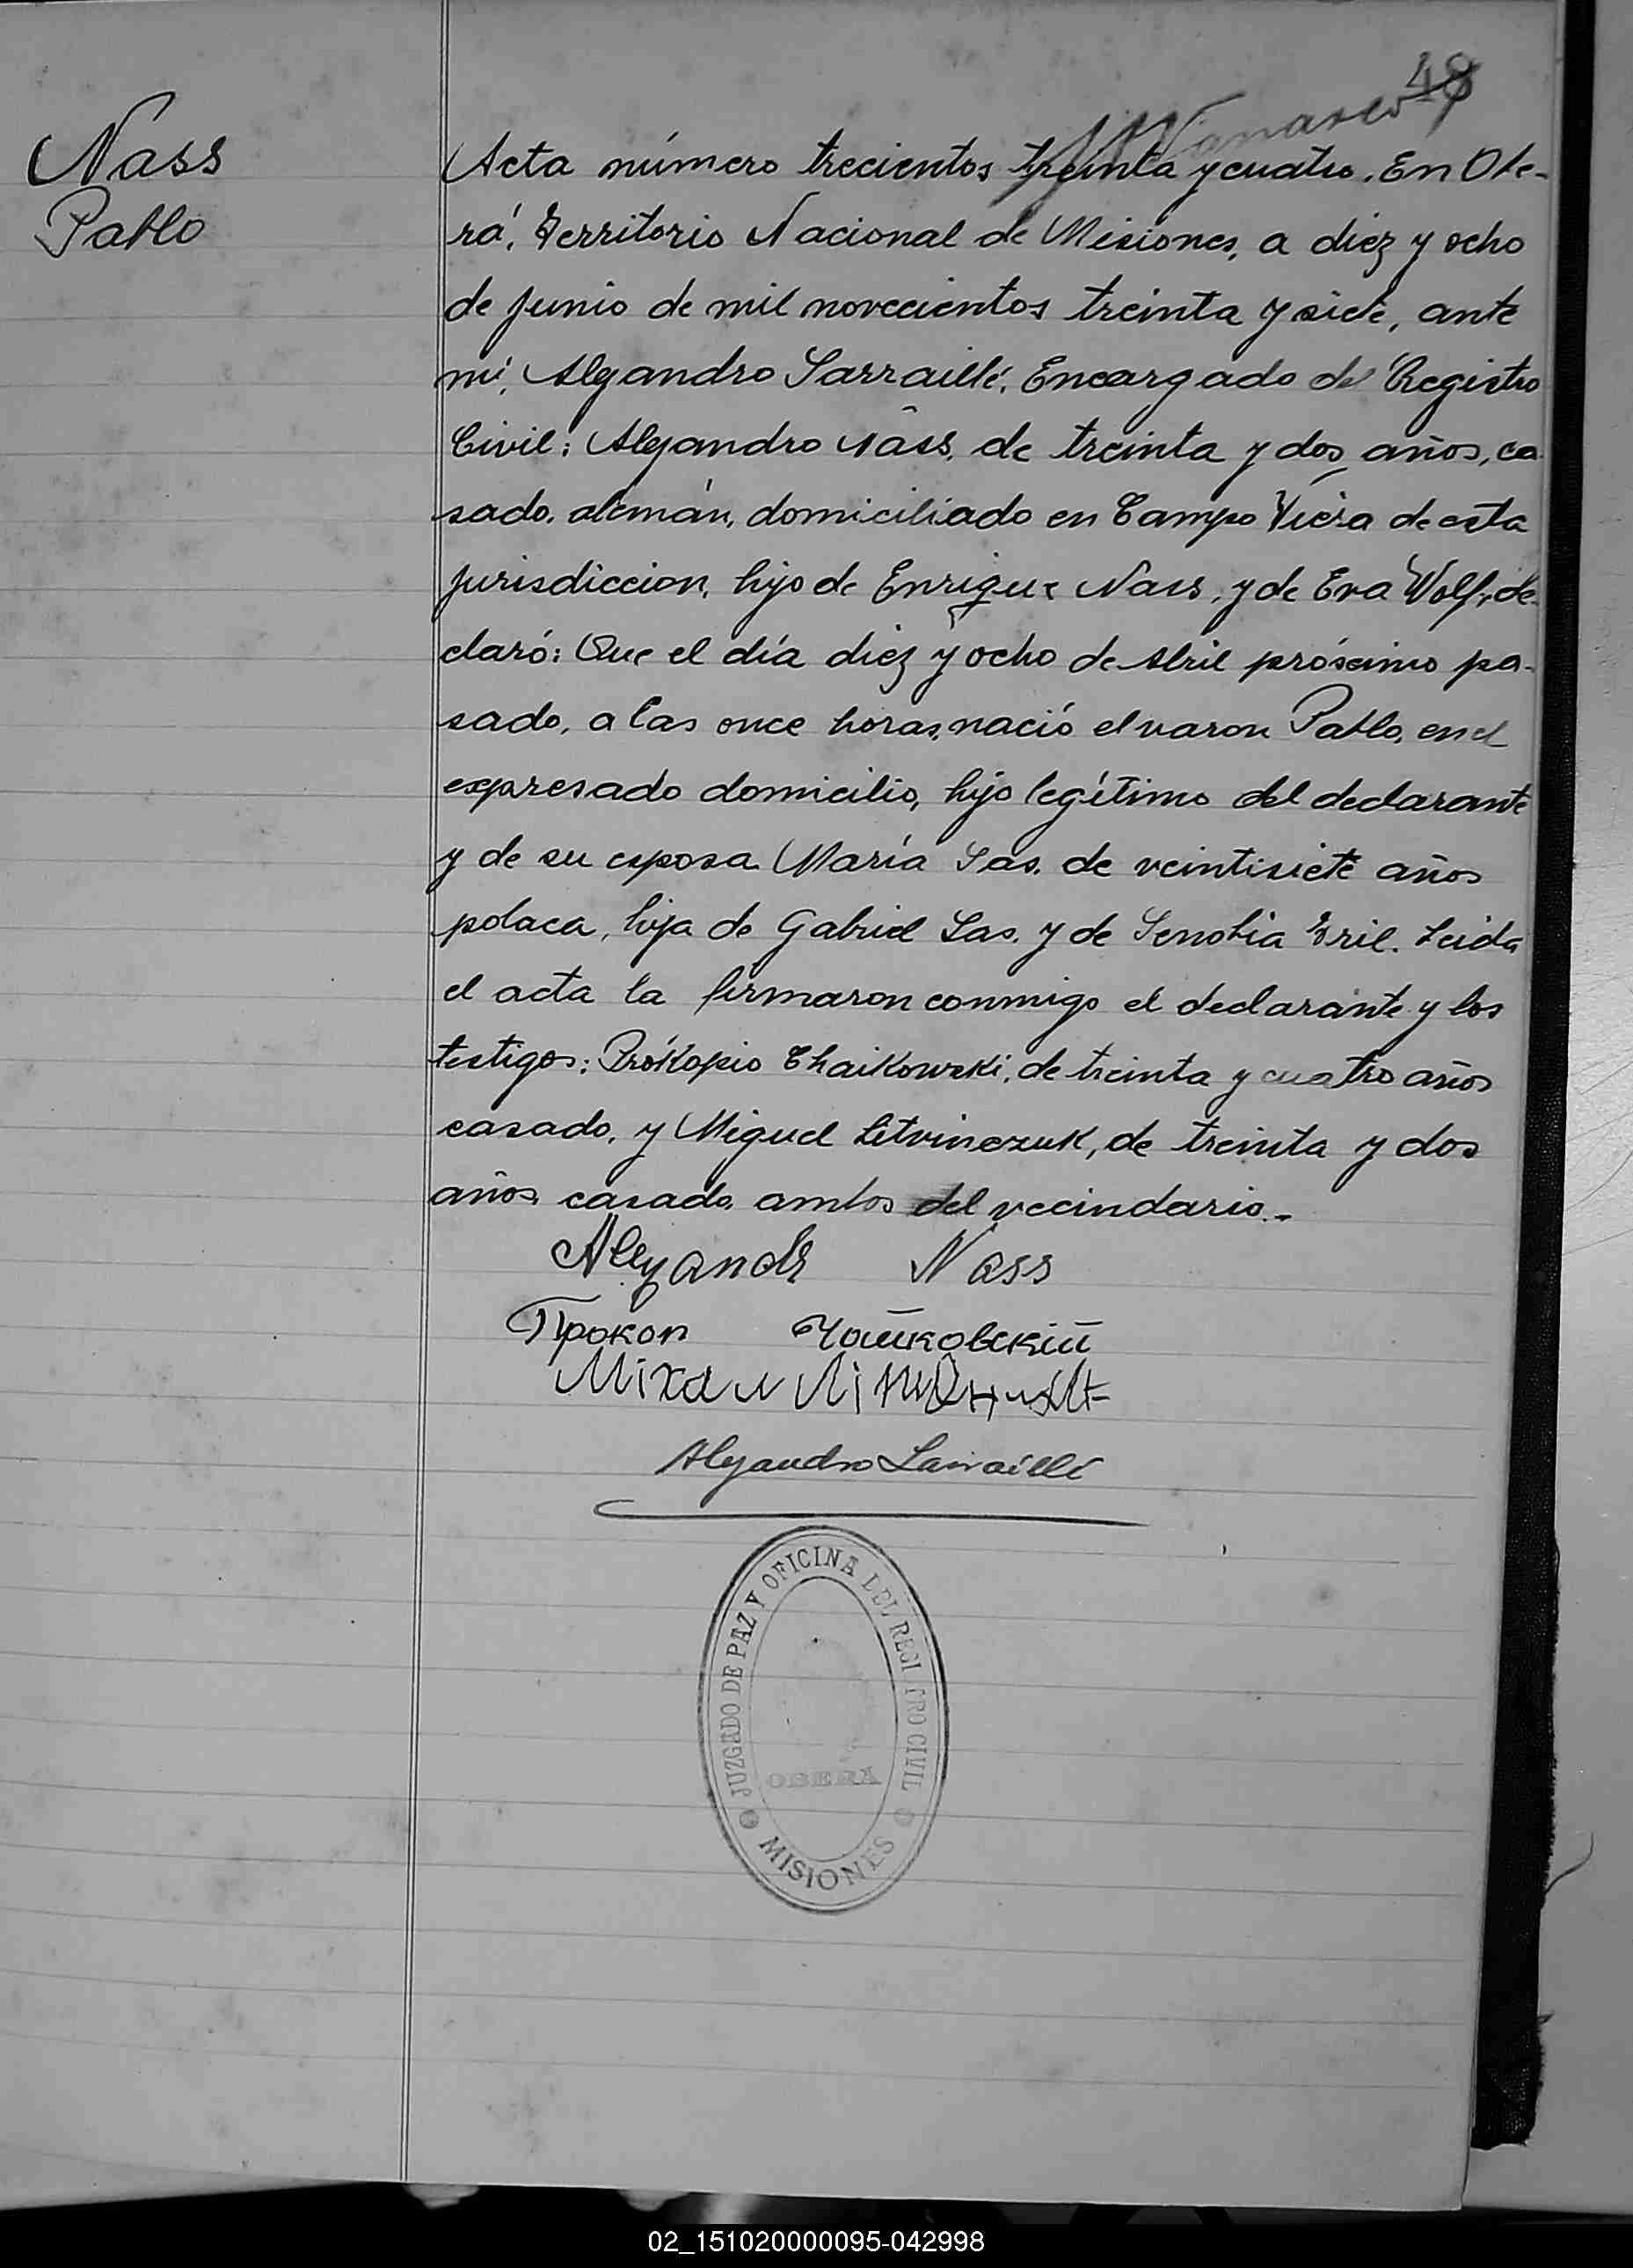 48
Nass
Pablo
Acta número trecientos treinta y cuatro. En Obe-
rá, Territorio Nacional de Misiones, a diez y ocho
de junio de mil novecientos treinta y siete, ante
mí, Alejandro Sarraillé, Encargado del Registro
Civil: Alejandro Nass, de treinta y dos años, ca-
sado, alemán, domiciliado en Campo Viera de esta
jurisdiccion, hijo de Enrique Nass, y de Eva Wolf, de-
claró: Que el día diez y ocho de Abril próximo pa-
sado, a las once horas, nació el varon Pablo, en el
expresado domicilio, hijo legítimo del declarante
y de su esposa María Sas, de veintisiete años
polaca, hija de Gabriel Sas, y de Senobia Gril. Leida
el acta la firmaron conmigo el declarante y los
testigos: Prókopio Chaikowski, de treinta y cuatro años
casado, y Miguel Litvinczuk, de treinta y dos
años, casado, ambos del vecindario.-
Alejandr Nass
Прокоп Чайковскій
Міхал
Alejandro Sarraillé
JUZGADO DE PAZ Y OFICINA DEL REGI TRO CIVIL
OBERA
MISIONES
02_151020000095-042998